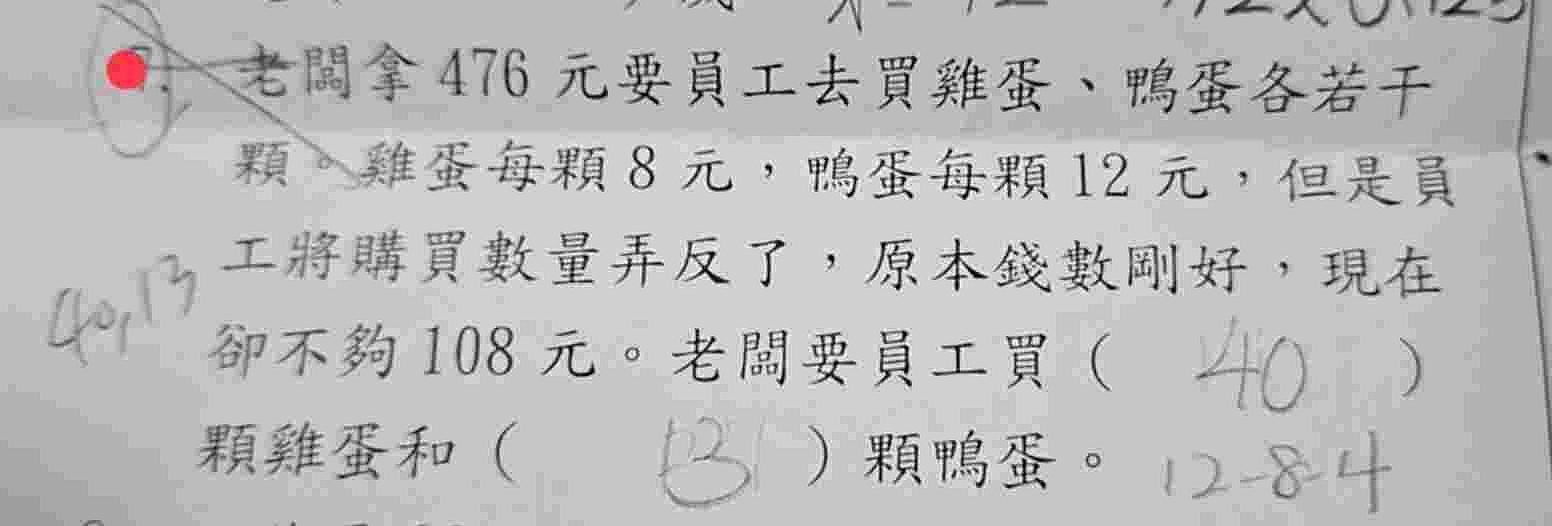 老闆拿 476 元要員工去買雞蛋、鴨蛋各若干
顆。雞蛋每顆 8 元,鴨蛋每顆 12 元,但是員
工將購買數量弄反了,原本錢數剛好,現在
40,13
卻不夠 108 元。老闆要員工買( 40 )
顆雞蛋和( 13 )顆鴨蛋。 12-8=4